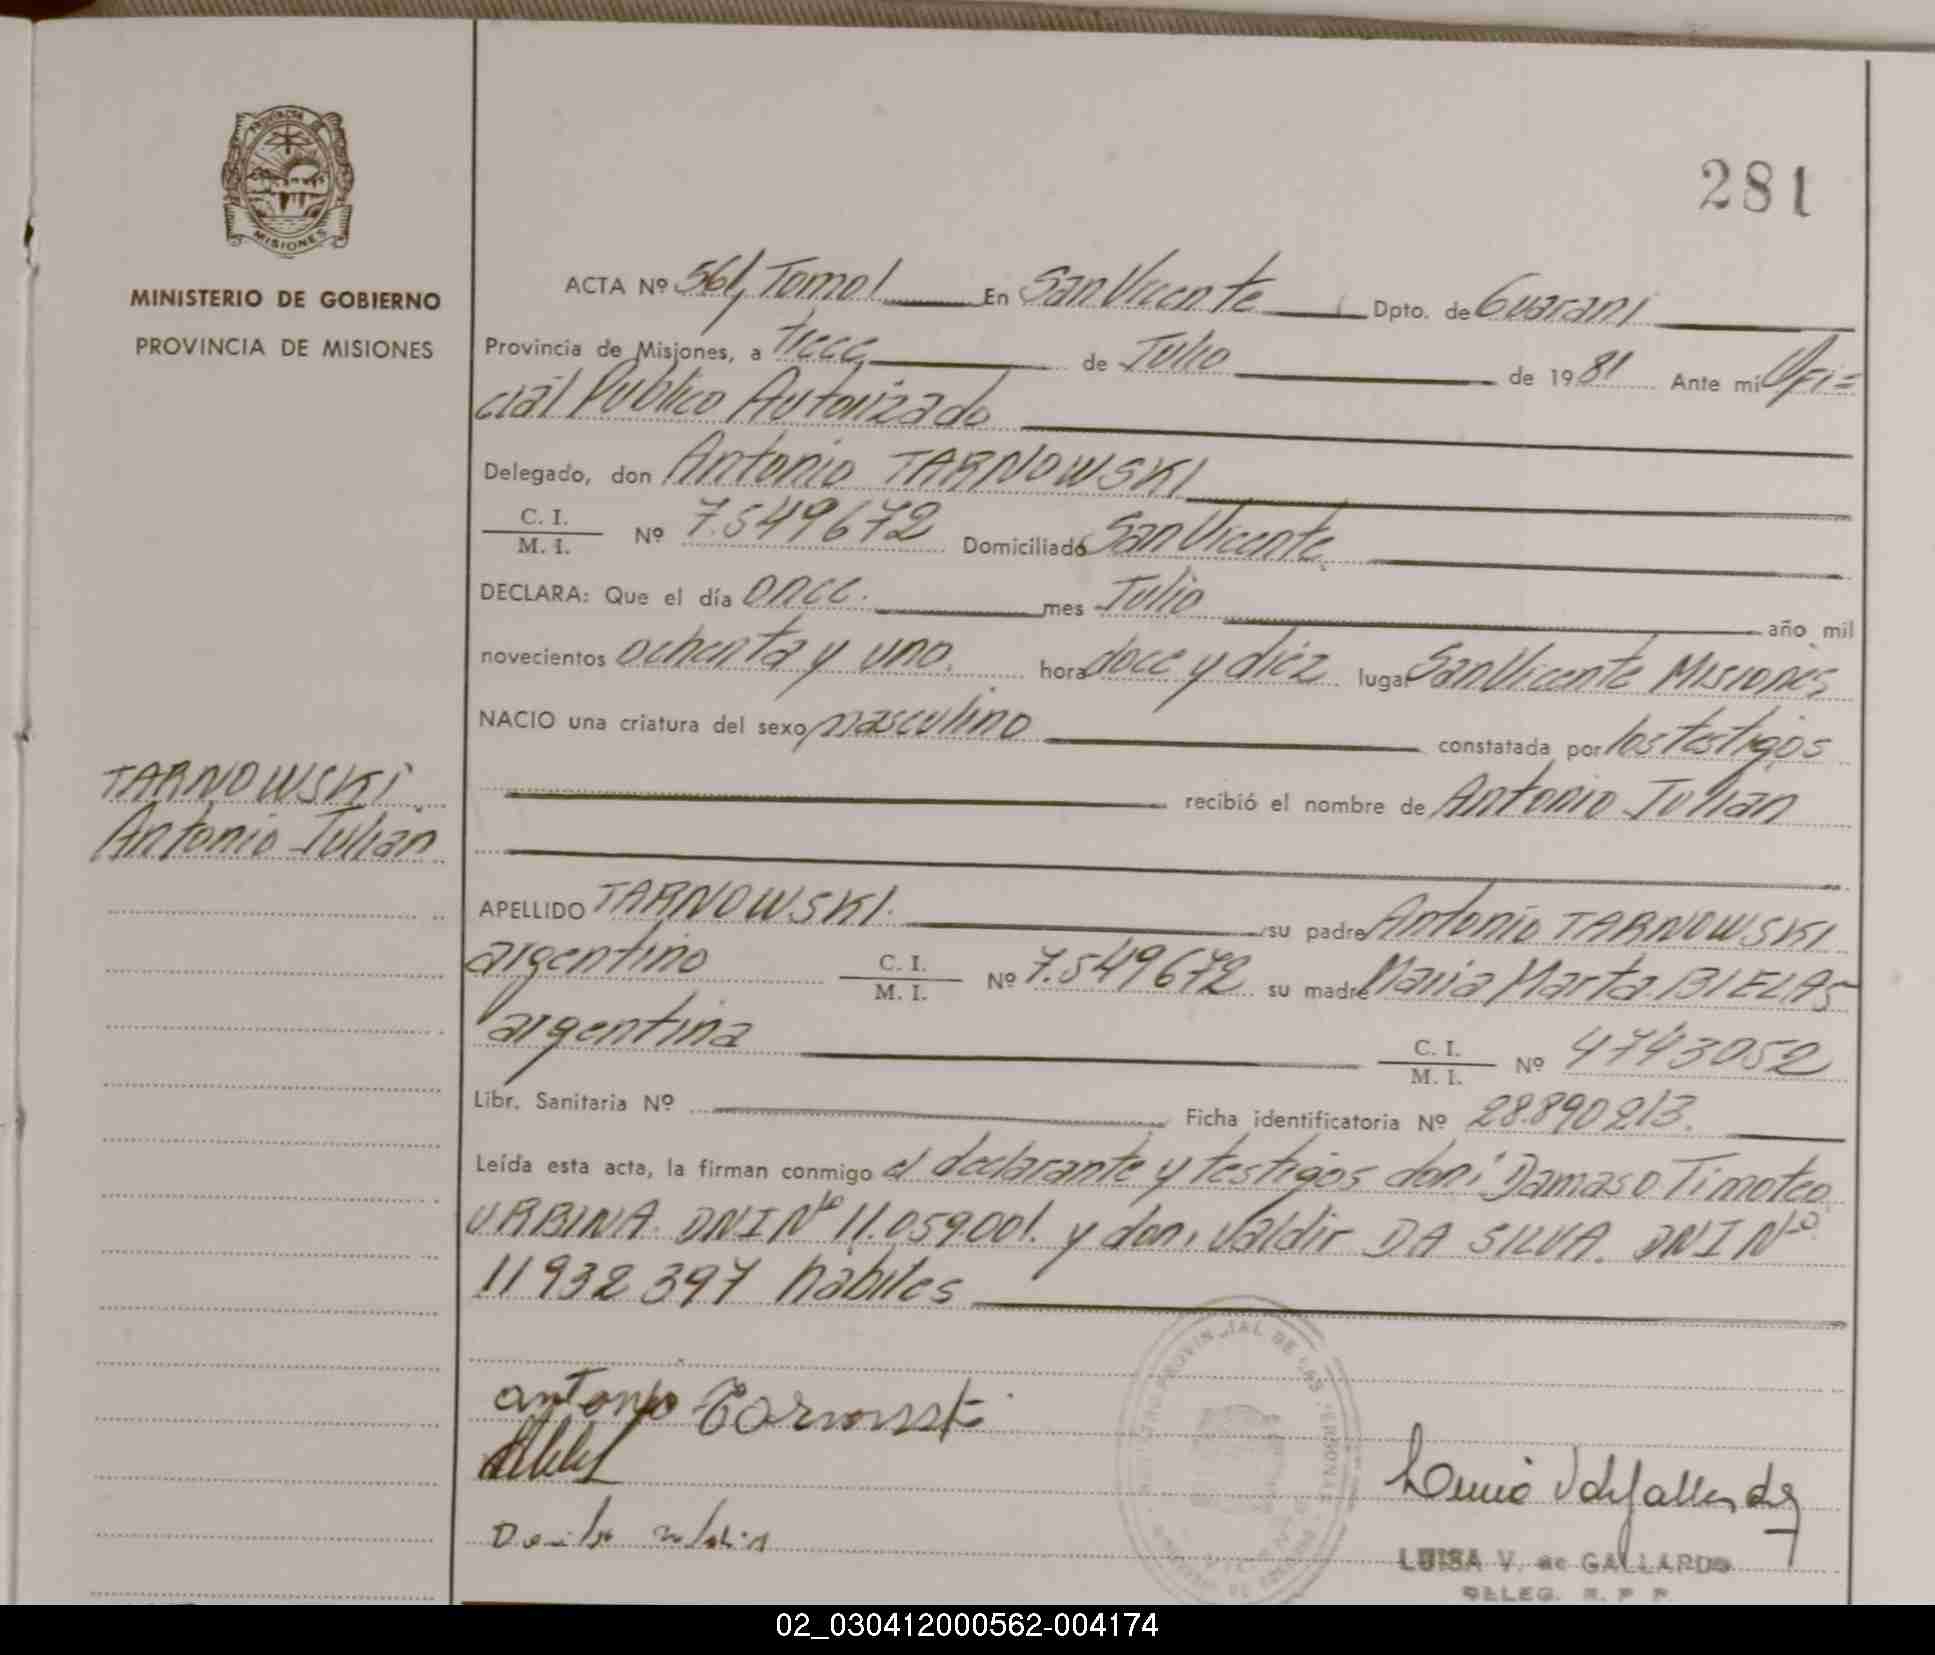 PROVINCIA DE
MISIONES
MINISTERIO DE GOBIERNO
PROVINCIA DE MISIONES
281
ACTA Nº 561, Tomo I En San Vicente Dpto. de Guarani
Provincia de Misiones, a trece de Julio de 1981 Ante mi Ofi=
cial Publico Autorizado
Delegado, don Antonio TARNOWSKI
C. I.
M. I. Nº 7.549672 Domiciliado San Vicente
DECLARA: Que el día once. mes Julio año mil
novecientos ochenta y uno. hora doce y diez lugar San Vicente Misiones
NACIO una criatura del sexo masculino constatada por los testigos
recibió el nombre de Antonio Julian
TARNOWSKI
Antonio Julian
APELLIDO TARNOWSKI. su padre Antonio TARNOWSKI
argentino C. I.
M. I. Nº 7.549672 su madre Maria Marta BIELAS
argentina C. I.
M. I. Nº 4743052
Libr. Sanitaria Nº Ficha identificatoria Nº 28.890213.
Leída esta acta, la firman conmigo el declarante y testigos don: Damaso Timoteo
URBINA. DNI Nº 11.059.001. y don: Valdir DA SILVA. DNI Nº
11932397 habiles
antonio Tarnowski
LUISA V. de GALLARDO
DELEG. R. P. P.
02_030412000562-004174